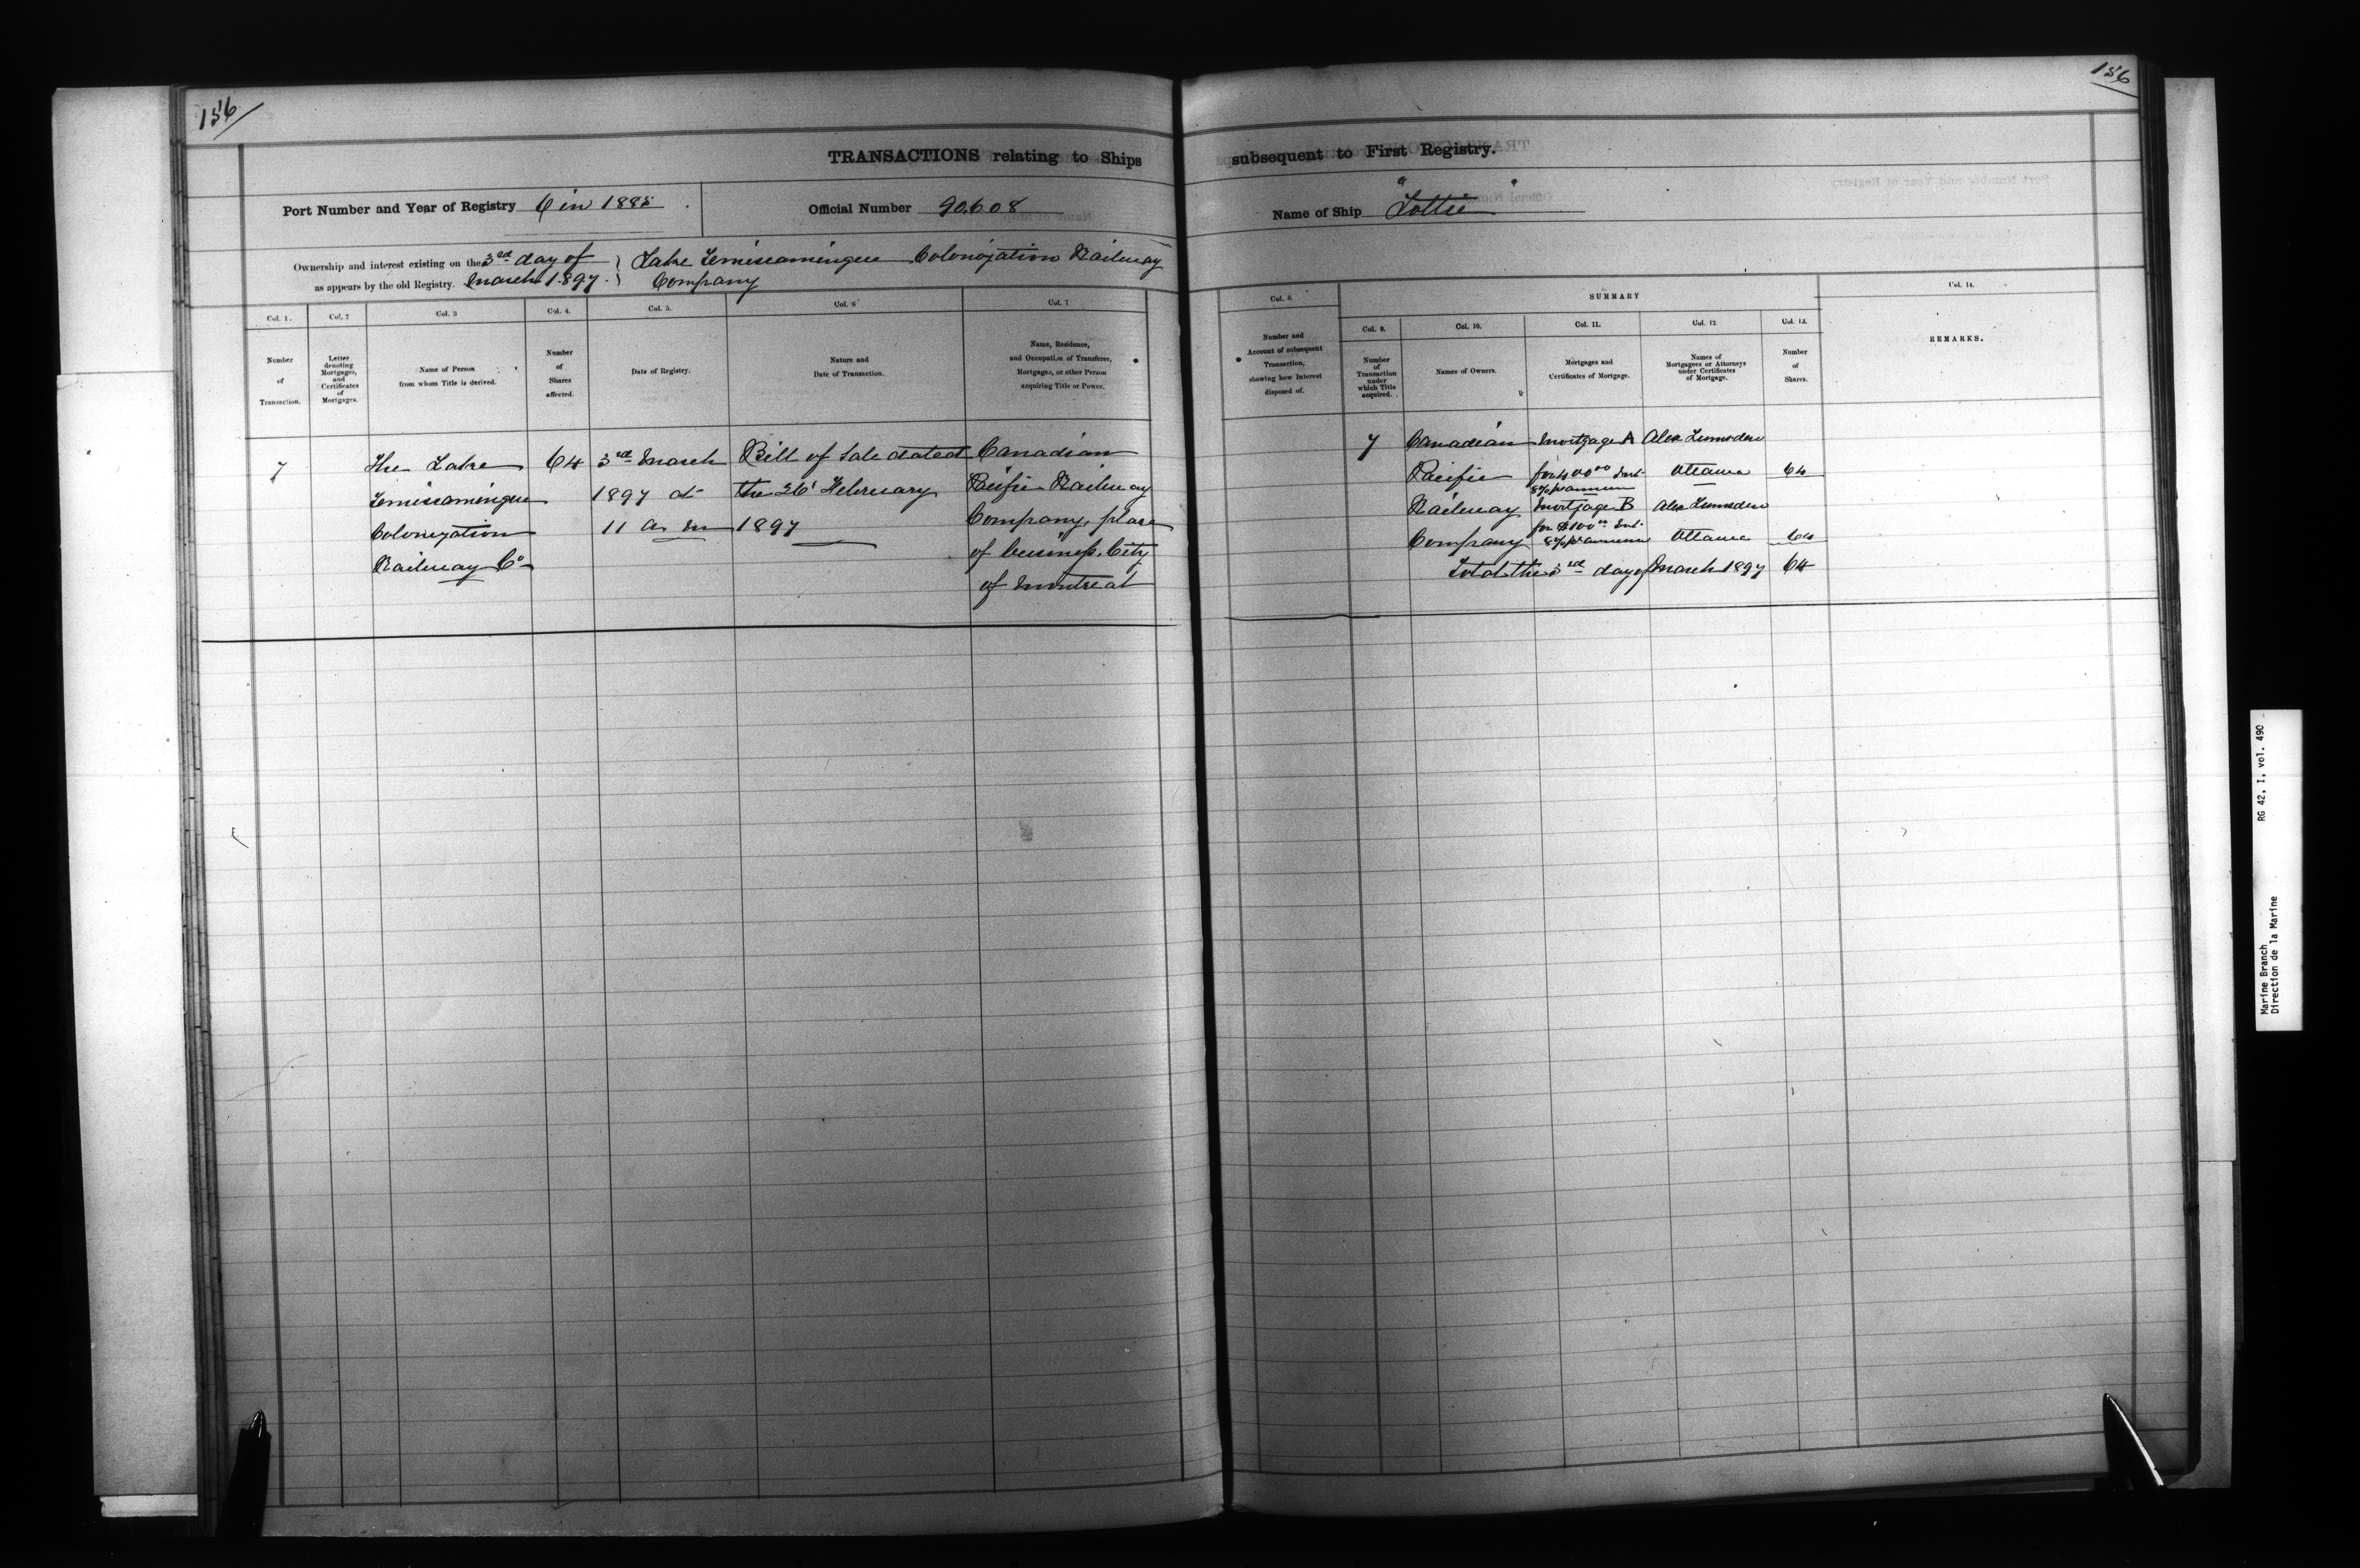 156
156
TRANSACTIONS relating to Ships subsequent to First Registry.
Port Number and Year of Registry 6 in 1885
Official Number 90.608
Name of Ship "Lottie"
Ownership and interest existing on the 3rd day of
as appears by the old Registry. March 1897.
Lake Temiscamingue Colonization Railway
Company
Col. 1.
Number
of
Transaction.
Col. 2
Letter
denoting
Mortgages,
and
Certificates
of
Mortgages.
Col. 3
Name of Person
from whom Title is derived.
Col. 4.
Number
of
Shares
affected.
Col. 5.
Date of Registry.
Col. 6
Nature and
Date of Transaction.
Col. 7
Name, Residence,
and Occupation of Transferee,
Mortgagee, or other Person
acquiring Title or Power.
Col. 8.
Number and
Account of subsequent
Transaction,
showing how Interest
disposed of.
SUMMARY
Col. 9.
Number
of
Transaction
under
which Title
acquired.
Col. 10.
Names of Owners.
Col. 11.
Mortgages and
Certificates of Mortgage.
Col. 12.
Names of
Mortgagees or Attorneys
under Certificates
of Mortgage.
Col. 13.
Number
of
Shares.
Col. 14.
REMARKS.
7
The Lake
Temiscamingue
Colonization
Railway Co
64
3rd March
1897 at
11 a m
Bill of Sale dated
the 26' February
1897
Canadian
Pacific Railway
Company, place
of business, City
of Montreal
7
Canadian
Pacific
Railway
Company
Mortgage A
for 400 00 Int.
8% p annum
Mortgage B
for $100 00 Int.
8% p annum
Alex Lumsden
Ottawa
Alex Lumsden
Ottawa
64
64
Total the 3rd day of March 1897 64
Marine Branch RG 42, I, vol. 490
Direction de la Marine